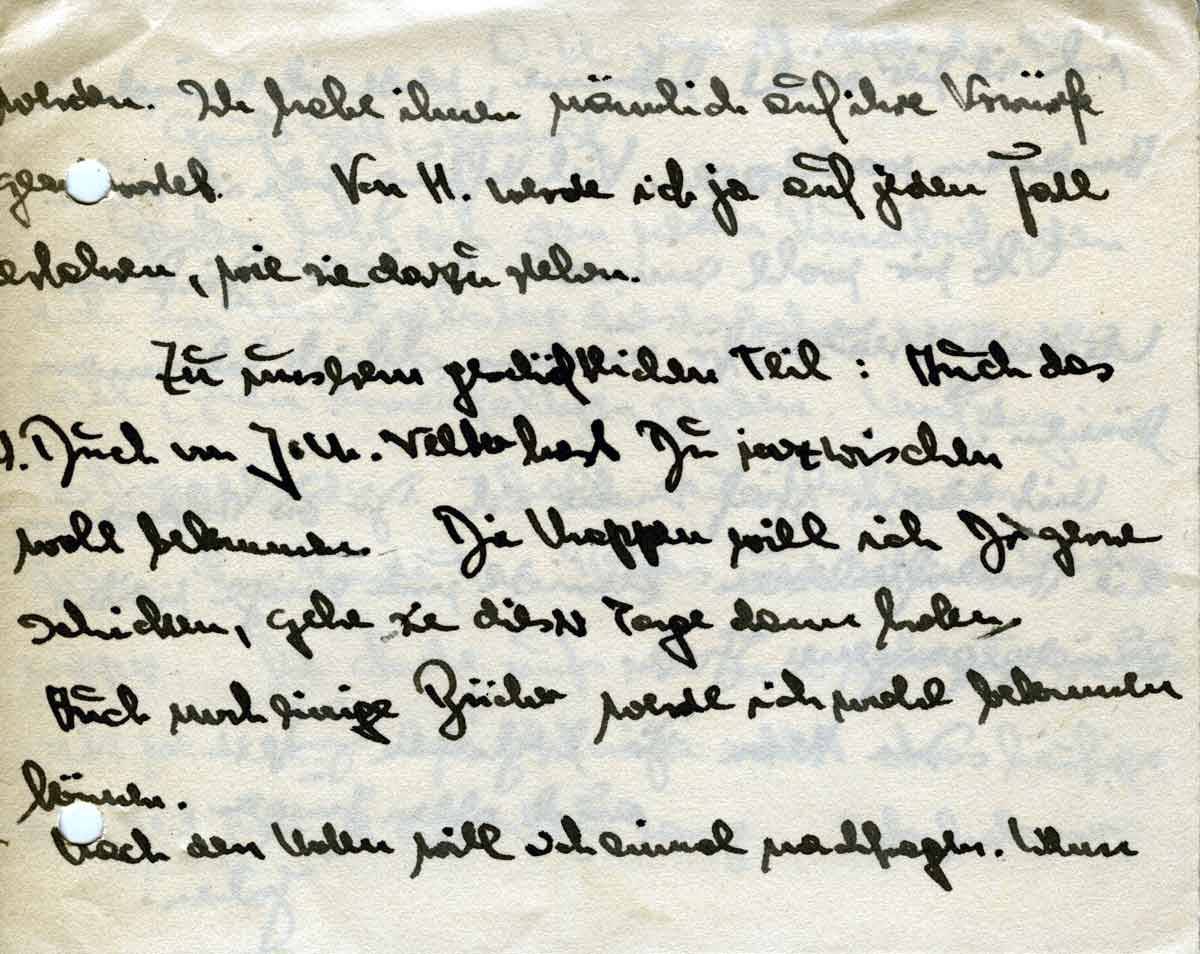 werden. Ich habe ihnen nämlich auf ihre Vorwürfe
Von H. werde ich ja auf jeden Fall
erfahren, wie sie dazu stehen.
Zu unserem geschäftlichen Teil: Auch das
Buch von Joth. Velter hast Du inzwischen
wohl bekommen. Die Mappen will ich Dir gerne
schicken, gehe sie diese Tage dann holen.
Auch noch einige Bücher werde ich wohl bekommen
können.
Nach den Noten will ich einmal nachfragen. Wenn